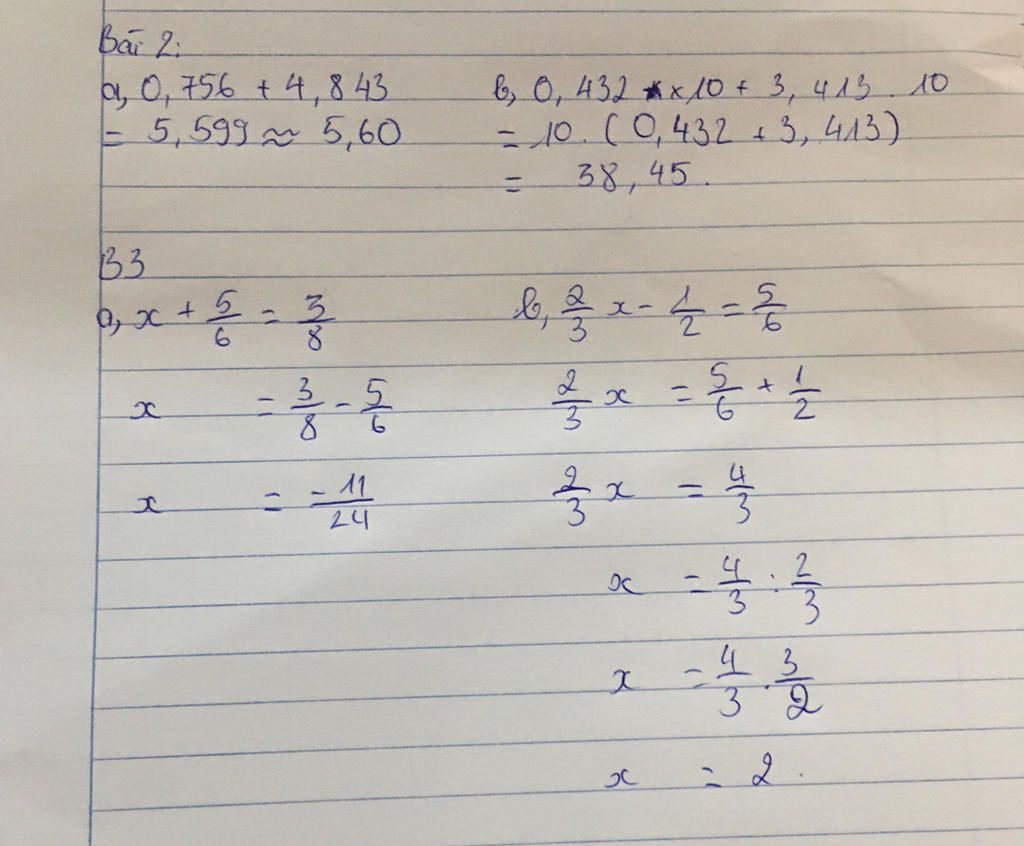 Bài 2:
a, 0,756 + 4,843
= 5,599 ≈ 5,60
b, 0,432 x 10 + 3,413 . 10
= 10 . (0,432 + 3,413)
= 38,45.
B3
a, x + 5/6 = 3/8
x = 3/8 - 5/6
x = -11/24
b, 2/3 x - 1/2 = 5/6
2/3 x = 5/6 + 1/2
2/3 x = 4/3
x = 4/3 : 2/3
x = 4/3 . 3/2
x = 2.